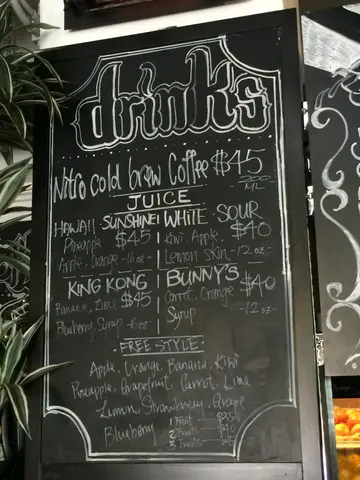 drinks
Nitro cold brew Coffee $45
ML
JUICE
HAWAII SUNSHINE
$45
Pineapple
Apple, Orange -16 oz-
WHITE SOUR
$40
Kiwi, Apple,
Lemon skin -12 oz-
KING KONG
$45
Banana, Lime
Blueberry, Syrup -16 oz
BUNNY'S
$40
Carrot, Orange
Syrup -12 oz-
FREE STYLE:
Apple, Orange, Banana, Kiwi
Pineapple, Grapefruit, Carrot, Lime
Lemon, Strawberry, Grape
Blueberry
1 Fruit $35
2 Fruits $40
3 Fruits